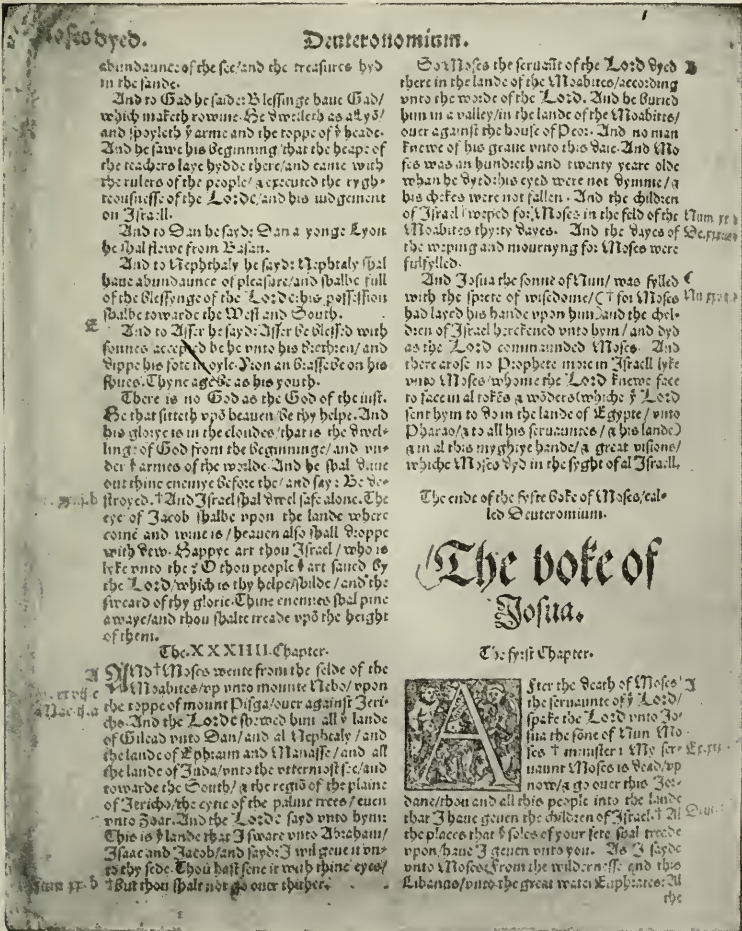 Moses dyed.
Deuteronomium.
abundaunce of the see/and the treasures hyd
in the sande.
And to Gad he saide: Blessinge haue Gad/
which maketh rowme. He dwelleth as a lyō/
and spoyleth ẏ arme and the toppe of ẏ heade.
And he sawe his beginning/that the heape of
the teachers laye hydde there/and came with
the rulers of the people/& executed the rygh-
teousnesse of the Lorde/and his iudgement
on Israell.
And to Dan he sayd: Dan a yonge Lyon
he shal flowe from Basan.
And to Nephthaly he sayd: Nephtaly shal
haue abundaunce of pleasure/and shalbe full
of the blessynge of the Lorde: his possession
shalbe towarde the West and South.
And to Asser he sayd: Asser be blessed with
sonnes accepted be he vnto his brethren/and
dippe his fote in oyle. Yron an brasse be on his
shues. Thyne age be as his youth.
There is no God as the God of the iust.
He that sitteth vpō heauen/be thy helpe. And
his glorye is in the cloudes/that is the dwel-
linge of God from the beginninge/and vn-
der ẏ armes of the worlde. And he shal driue
out thine enemye before the/and say: Be de-
stroyed. †And Israel shal dwel safe alone. The
eye of Jacob shalbe vpon the lande where
corne and wine is/heauen also shall droppe
with dew. Happye art thou Israel/who is
lyke vnto the? O thou people ẏ art saued by
the Lord/which is thy helpe/shilde/and the
sweard of thy glorie. Thine enemies shal pine
awaye/and thou shalte treade vpō the height
of them.
The XXXIIII. Chapter.
And †Moses wente from the felde of the
Moabites/vp vnto mounte Nebo/vpon
the toppe of mount Pisga/ouer against Jeri-
cho. And the Lorde shewed him all ẏ lande
of Gilead vnto Dan/and al Nephtaly/and
the lande of Ephraim and Manasse/and all
the lande of Juda/vnto the vttermost see/and
towarde the South/& the regiō of the plaine
of Jericho/the cytie of the palme trees/euen
vnto Zoar. And the Lorde sayd vnto hym:
This is ẏ lande that I sware vnto Abraham/
Isaac and Jacob/and sayd: I wil geue it vn-
to thy sede. Thou hast sene it with thine eyes/
†But thou shalt not go ouer thither.
So Moses the seruaūt of the Lord dyed
there in the lande of the Moabites/according
vnto the worde of the Lord. And he buried
him in a valley/in the lande of the Moabites/
ouer against the house of Peor. And no man
knewe of his graue vnto this daie. And Mo
ses was an hundreth and twenty yeare olde
whan he dyed: his eyes were not dymme/&
his chekes were not fallen. And the children
of Israel weped for Moses in the feld of the
Moabites thyrty dayes. And the dayes of
the weping and mournyng for Moses were
fulfylled.
And Josua the sonne of Nun/was fylled
with the sprete of wisedome/(† for Moses
had layed his hande vpon him) and the chyl-
dren of Israel herkened vnto hym/and dyd
as the Lord commaunded Moses. And
there arose no Prophete more in Israell lyke
vnto Moses/whome the Lord knewe face
to face in al tokēs & wōders (whiche ẏ Lord
sent hym to do in the lande of Egypte/vnto
Pharao/& to all his seruauntes/& his lande)
& in al this myghtye hande/& great visions/
whiche Moses dyd in the syght of al Israell.
The ende of the fyfte boke of Moses/cal-
led Deuteromium.
The boke of
Josua.
The fyrst Chapter.
After the death of Moses
the seruaunte of ẏ Lord/
spake the Lord vnto Jo-
sua the sōne of Nun Mo-
ses † minister: My ser-
uaunt Moses is dead/vp
now/& go ouer this Jor-
dane/thou and all this people into the lande
that I haue geuen the children of Israel. † Al
the places that ẏ soles of your fete shal treade
vpon/haue I geuen vnto you. As I sayde
vnto Moses. From the wildernesse and this
Libanus/vnto the great water Euphrates: Al
the